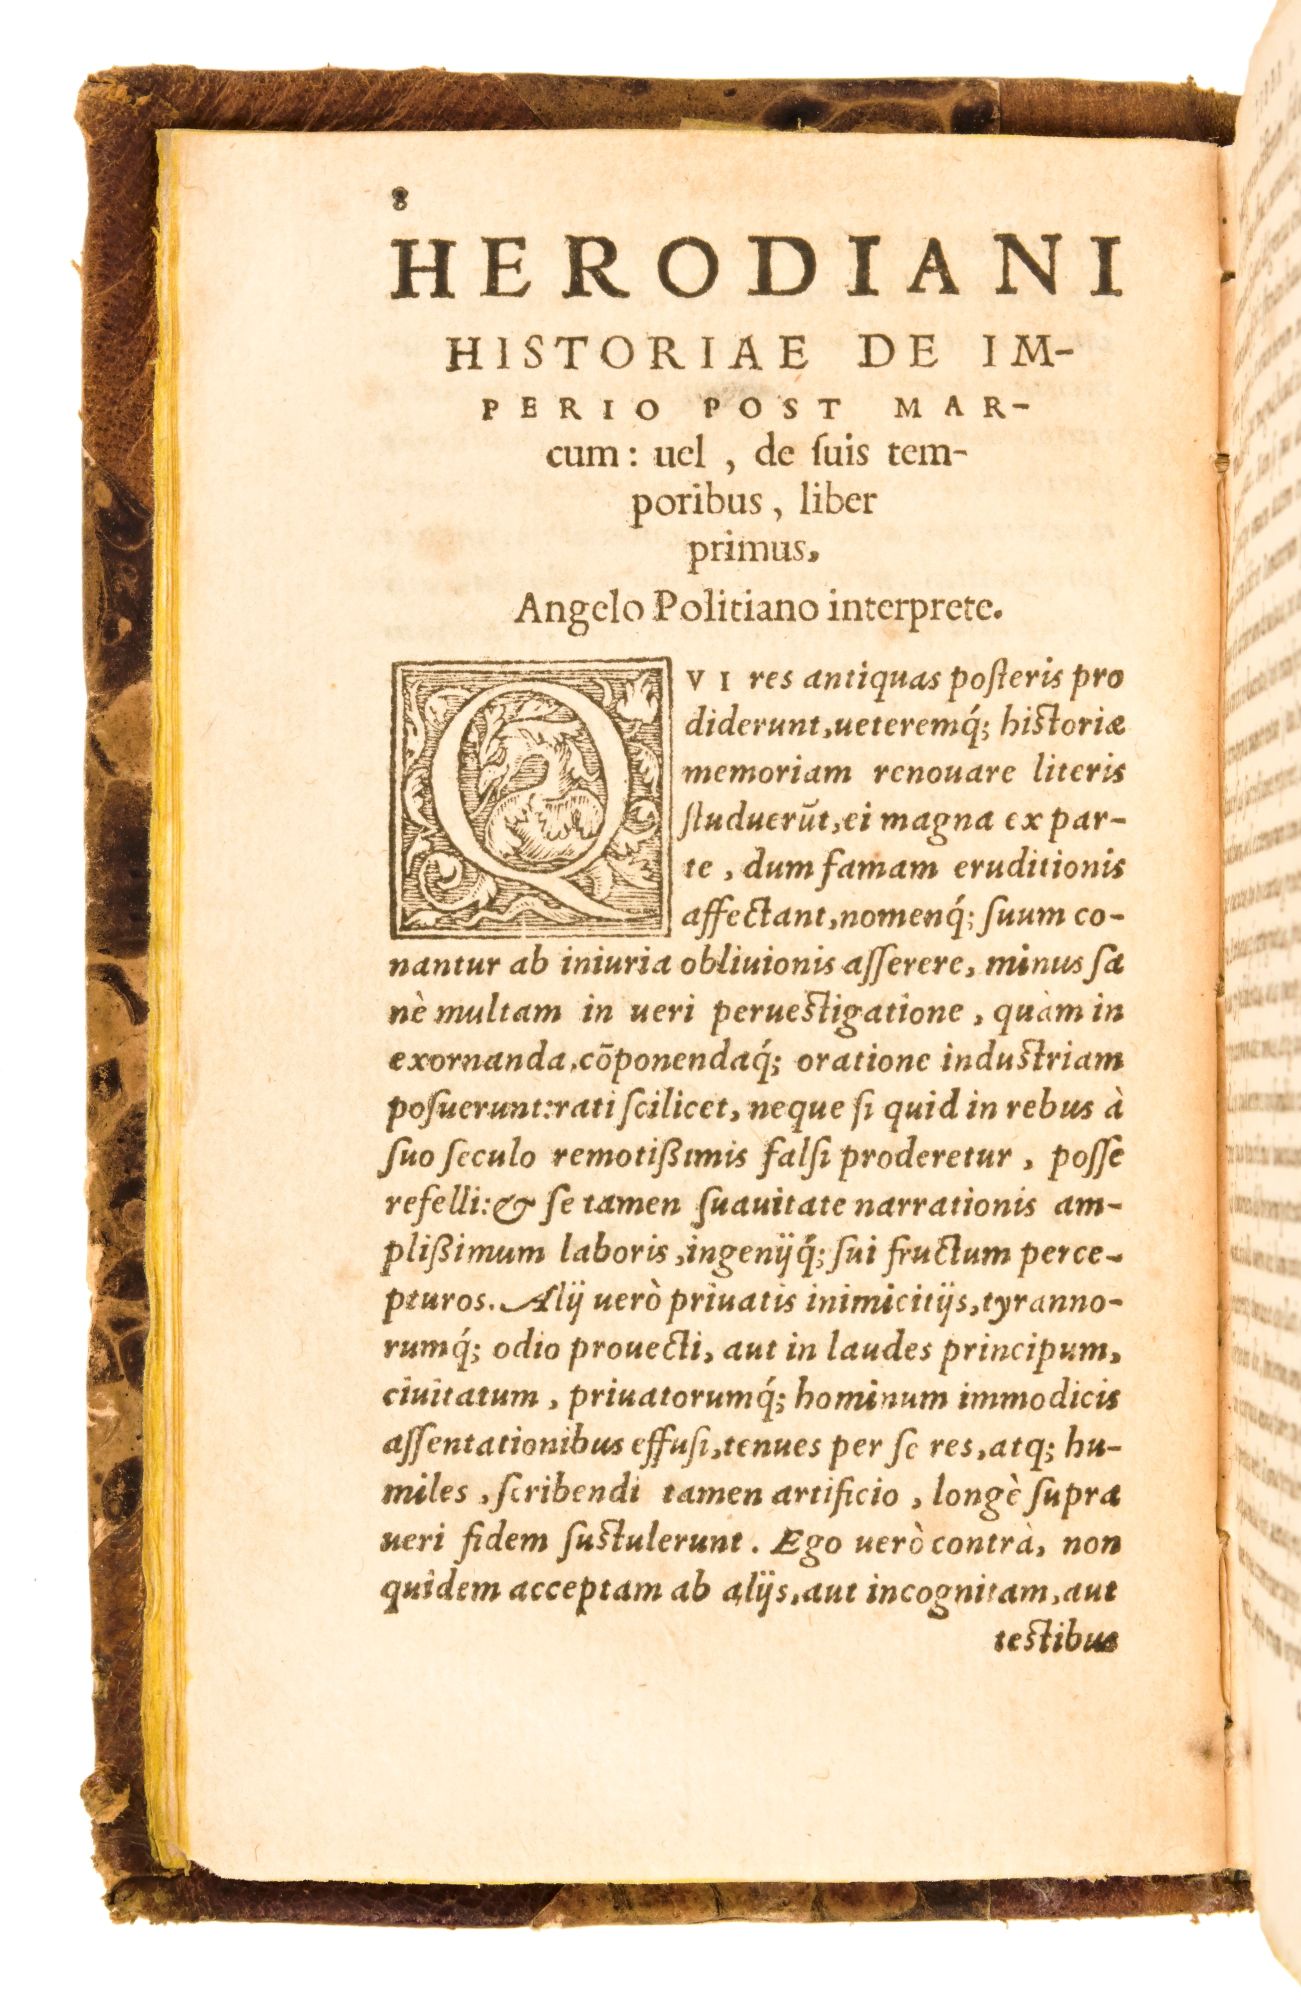 8
HERODIANI
HISTORIAE DE IM-
PERIO POST MAR-
cum: uel, de ſuis tem-
poribus, liber
primus.
Angelo Politiano interprete.
QVI res antiquas poſteris pro
diderunt, ueteremq́; historiæ
memoriam renouare literis
ſtuduerūt, ei magna ex par-
te, dum famam eruditionis
affectant, nomenq́; ſuum co-
nantur ab iniuria obliuionis aſſerere, minus ſa
nè multam in ueri perueſtigatione, quàm in
exornanda, cōponendaq́; oratione induſtriam
poſuerunt: rati ſcilicet, neque ſi quid in rebus à
ſuo ſeculo remotißimis falſi proderetur, poſſe
refelli: & ſe tamen ſuauitate narrationis am-
plißimum laboris, ingenijq́; ſui fructum perce-
pturos. Alij uerò priuatis inimicitijs, tyranno-
rumq́; odio prouecti, aut in laudes principum,
ciuitatum, priuatorumq́; hominum immodicis
aſſentationibus effuſi, tenues per ſe res, atq; hu-
miles, ſcribendi tamen artificio, longè ſupra
ueri fidem ſuſtulerunt. Ego uerò contrà, non
quidem acceptam ab alijs, aut incognitam, aut
teſtibus